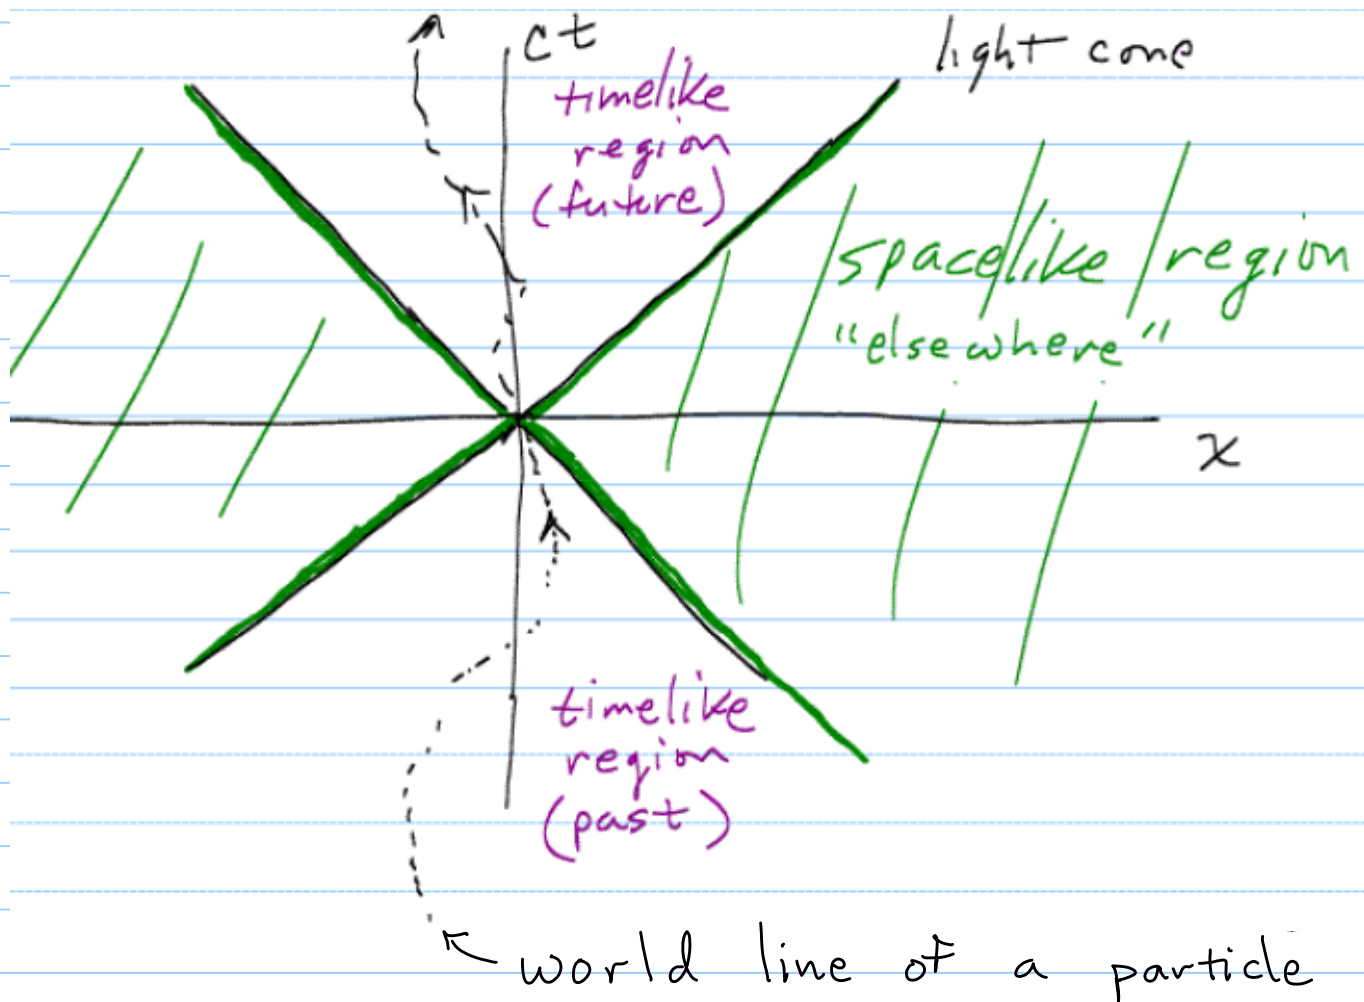 ct
light cone
timelike
region
(future)
spacelike region
"elsewhere"
x
timelike
region
(past)
world line of a particle